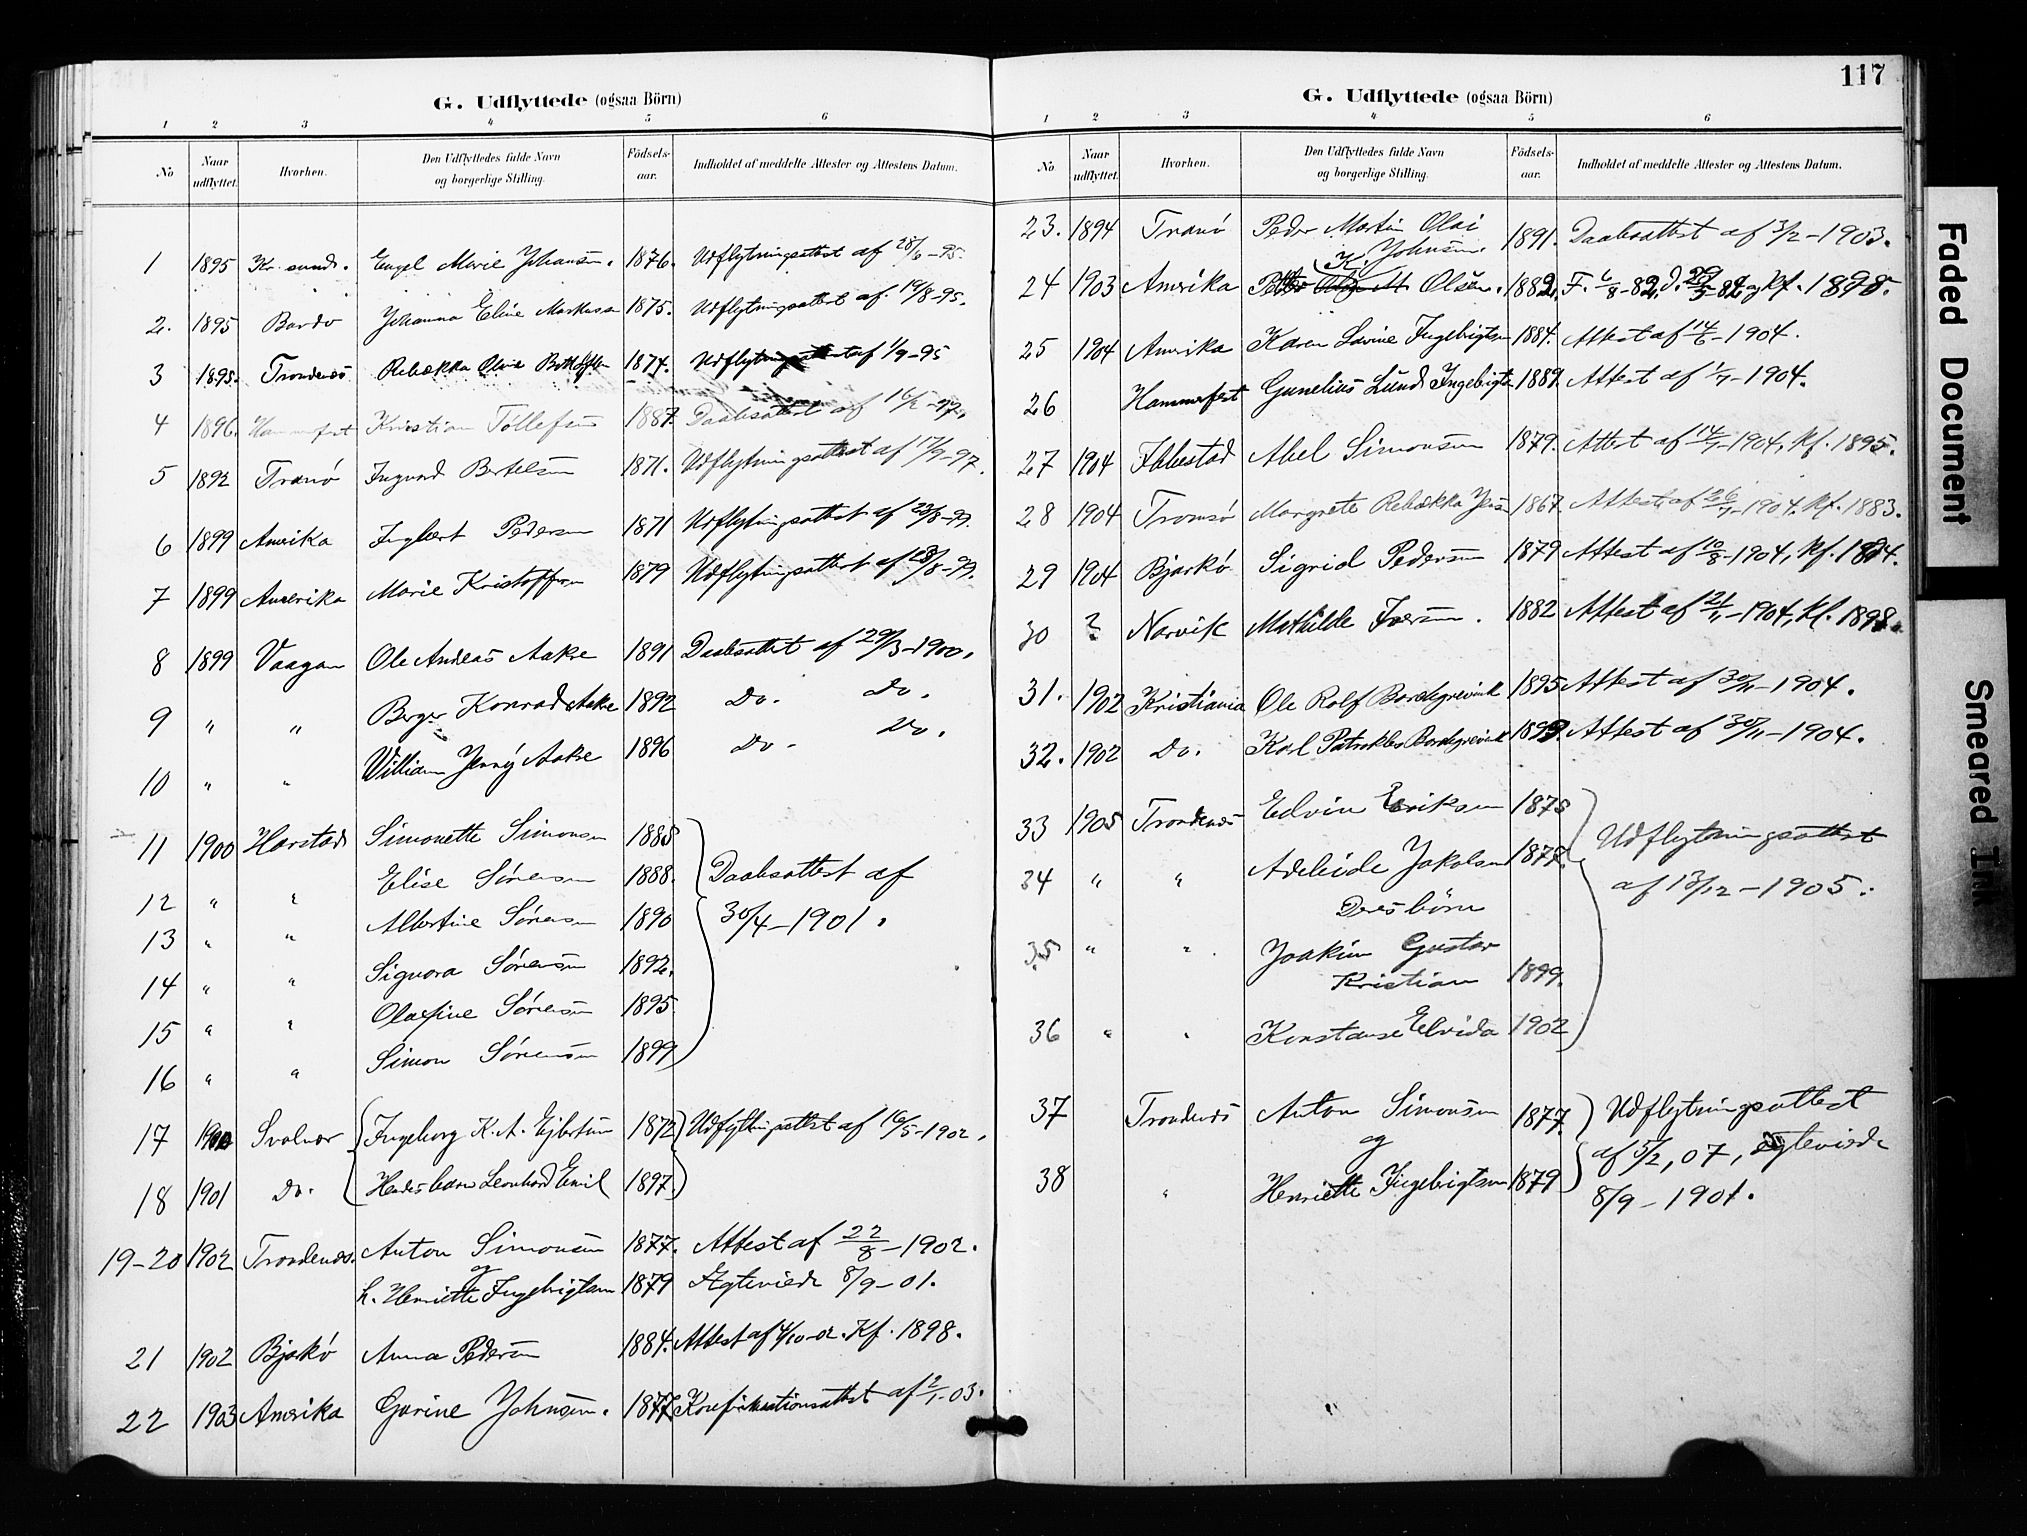 G. Udflyttede (ogsaa Börn)
1 2 3 4 5 6
No Naar udflyttet. Hvorhen. Den Udflyttedes fulde Navn og borgerlige Stilling. Födsels-aar. Indholdet af meddelte Attester og Attestens Datum.
1 1895 Kr. sund. Engel Marie Johansen. 1876. Udflytningsattest af 28/6-95.
2. 1895 Bardo Johanna Eline Markussen 1875. Udflytningsattest af 19/8-95.
3 1895. Trondenæs Rebækka Oline 1874. Udflytningsattest af 1/9-95
4 1896. Hammerfest Kristian Tollefsen 1887. Daabsattest af 16/2-97.
5 1892 Tranö Ingvard Bertelsen 1871. Udflytningsattest af 17/9-97.
6 1899 Amerika Ingbert Pedersen 1871 Udflytningsattest af 28/8-99.
7 1899 Amerika Marie Kristoffersen 1879 Udflytningsattest af 28/8-99.
8 1899 Vaagan Ole Andreas Aakre 1891 Daabsattest af 29/3-1900.
9 " " Birger Konrad Aakre 1892 Do. Do.
10 " " William Jenny Aakre 1896 Do. Do.
11 1900 Harstad Simonette Simonsen 1885
12 " " Elise Sörensen 1888. Daabsattest af
13 " " Albertine Sörensen 1890 30/4-1901.
14 " " Signora Sörensen 1892.
15 " " Olafine Sörensen 1895
16 " " Simon Sörensen 1899
17 Svolvær Ingeborg K. A. Ejlertsen 1872 Udflytningsattest af 16/5-1902.
18 1901 Do. Hendes barn Leonhard Emil 1897
19-20 1902 Trondenæs. Anton Simonsen 1877. Attest af 22/8-1902.
og
h. Henriette Ingebrigtsen 1879 Ægteviede 8/9-01.
21 1902 Bjarkö Anna Pedersen 1884. Attest af 4/10-02. Kf. 1898.
22 1903 Amerika Gurine Johnsen. 1877 Konfirmationsattest af 2/1-03.
117
G. Udflyttede (ogsaa Börn)
1 2 3 4 5 6
No. Naar udflyttet. Hvorhen. Den Udflyttedes fulde Navn og borgerlige Stilling. Födsels-aar. Indholdet af meddelte Attester og Attestens Datum.
23. 1894 Tranö Peder Martin Olai 1891. Daabsattest af 3/2-1903.
K. Johnsen.
24 1903 Amerika Olsen. 1882. F. 6/8-82. d. 29/3-82 og kf. 1898.
25 1904 Amerika Karen Lovine Ingebrigtsen 1884. Attest af 14/6-1904.
26 Hammerfest Gunelius Lund Ingebrigtsen 1889. Attest af 1/7-1904.
27 1904 Ibbestad Abel Simonsen 1879. Attest af 14/7-1904, kf. 1895.
28 1904 Tromsö Margrete Rebækka Jensen 1867 Attest af 26/7-1904. kf. 1883.
29 1904 Bjarkö Sigrid Pedersen 1879 Attest af 10/8-1904, kf. 1894.
30 ? Narvik Mathilde Iversen. 1882 Attest af 21/11-1904, kf. 1898.
31. 1902 Kristiania Ole Rolf Borchgrevink 1895 Attest af 30/11-1904.
32. 1902 Do. Karl Patrokles Borchgrevink 1899. Attest af 30/11-1904.
33 1905 Trondenæs Edvin Eriksen 1875 Udflytningsattest
34 " " Adeleide Jakobsen 1877. af 13/12-1905.
Deres börn
35 " " Joakim Gustav
Kristian 1899.
36 " " Konstanse Elvida 1902
37 Trondenæs Anton Simonsen 1877. Udflytningsattest
og af 5/2, 07, ægteviede
38 " Henriette Ingebrigtsen 1879 8/9-1901.
Faded Document
Smeared Ink